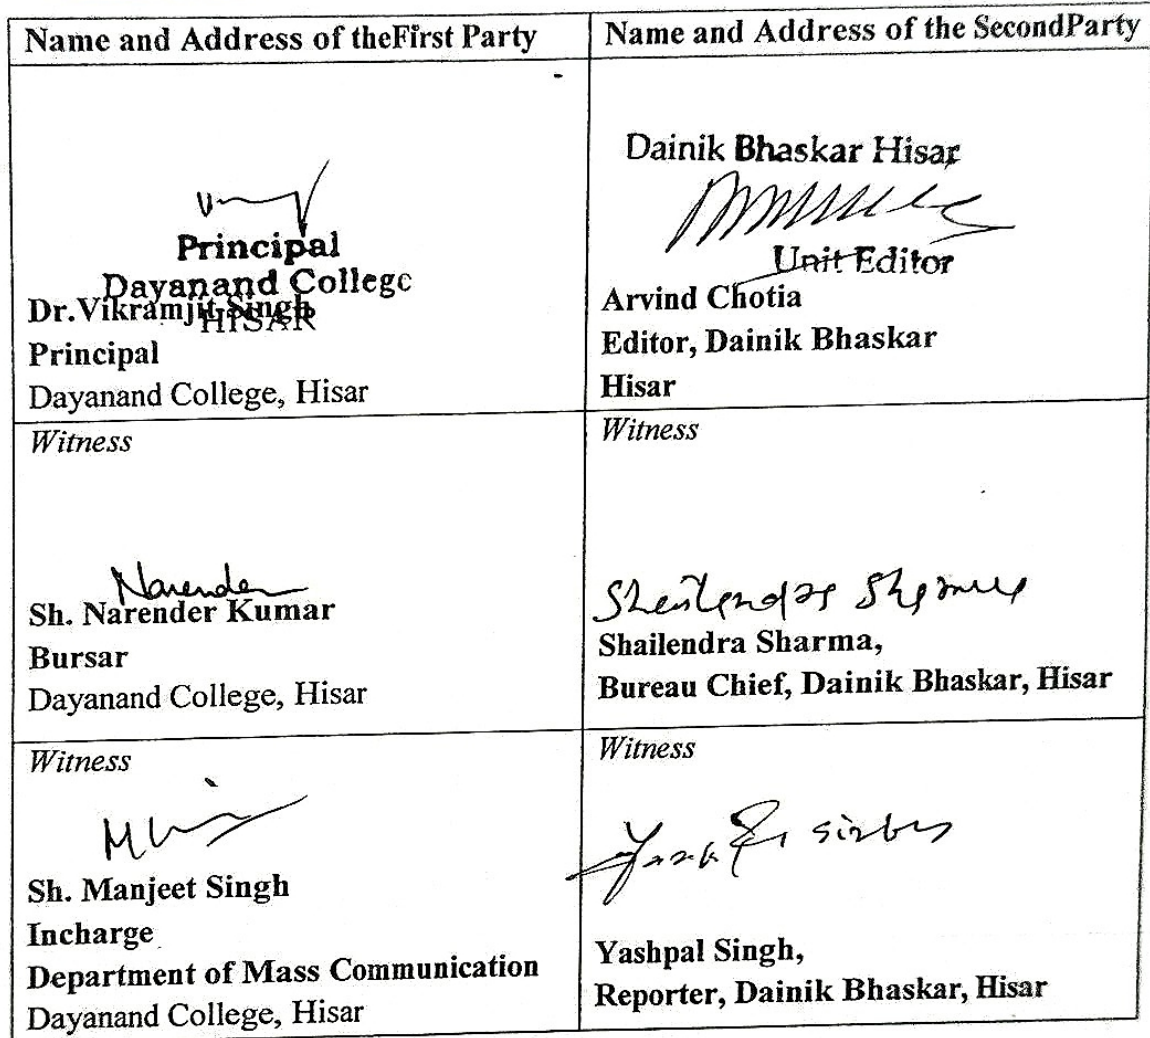 Name and Address of theFirst Party
Name and Address of the SecondParty
Principal
Dayanand College
HISAR
Dr.Vikramjit Singh
Principal
Dayanand College, Hisar
Dainik Bhaskar Hisar
Unit Editor
Arvind Chotia
Editor, Dainik Bhaskar
Hisar
Witness
Narender
Sh. Narender Kumar
Bursar
Dayanand College, Hisar
Witness
Shailendra Sharma
Shailendra Sharma,
Bureau Chief, Dainik Bhaskar, Hisar
Witness
Sh. Manjeet Singh
Incharge
Department of Mass Communication
Dayanand College, Hisar
Witness
Yashpal Singh,
Reporter, Dainik Bhaskar, Hisar